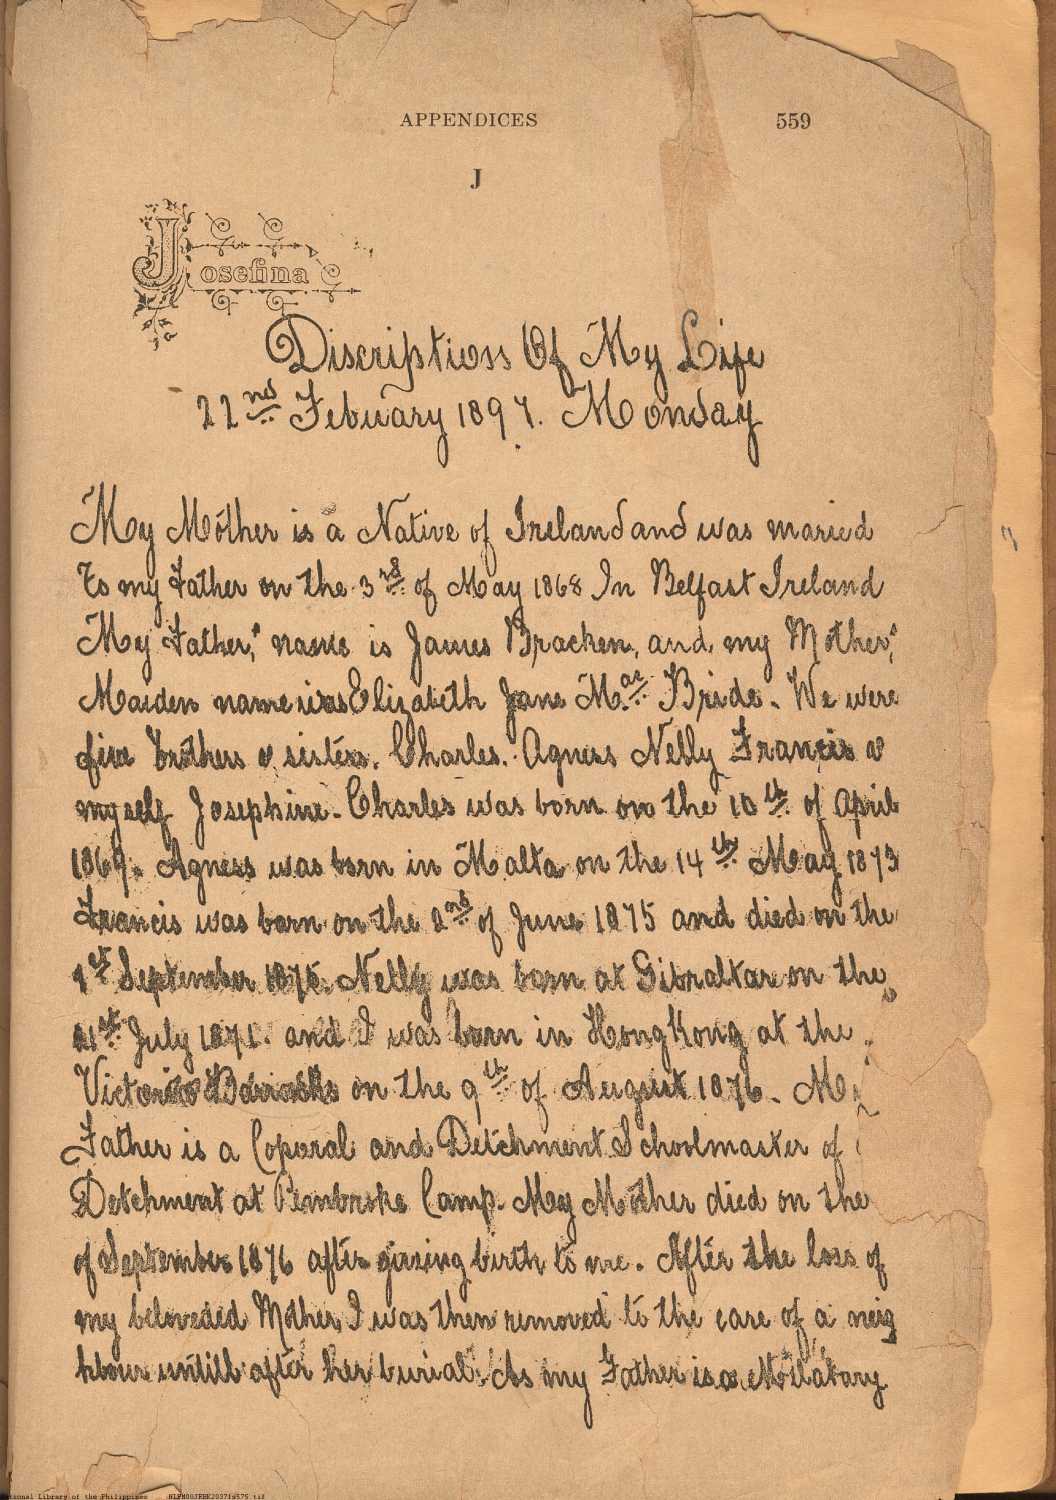 APPENDICES 559
J
Josefina
Discription Of My Life
22nd Febuary 1897. Monday
My Mother is a Native of Ireland and was maried
to my Father on the 3rd of May 1868 In Belfast Ireland
My Father,s name is James Bracken, and, my Mother,s
Maiden name was Elizabeth Jane Mac Bride. We were
five brothers & sisters. Charles. Agness Nelly Francis &
myself Josephine. Charles was born on the 10th of April
1869. Agness was born in Malta on the 14th May 1873
Francis was born on the 2nd of June 1875 and died on the
1st September 1875. Nelly was born at Gibraltar on the
21st July 1871. and I was born in Hong Kong at the
Victoria Barracks on the 9th of August 1876. My
Father is a Coporal and Detchment Schoolmaster of
Detchment at Pembroke Camp. My Mother died on the
of September 1876 after giving birth to me. After the loss of
my beloveded Mother, I was then removed to the care of a neig
hbour untill after her burial. As my Father is a Milatary
National Library of the Philippines